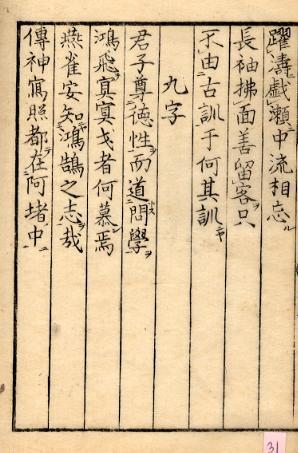 躍濤戲瀨中流相忘ル
長袖拂面善留客ヲ只
不由古訓于何其訓
九字
君子尊德性ヲ而道問學ヲ
鴻飛冥冥弋者何慕焉
燕雀安知鴻鵠之志ヲ哉
傳神寫照都在阿堵中ニ
31